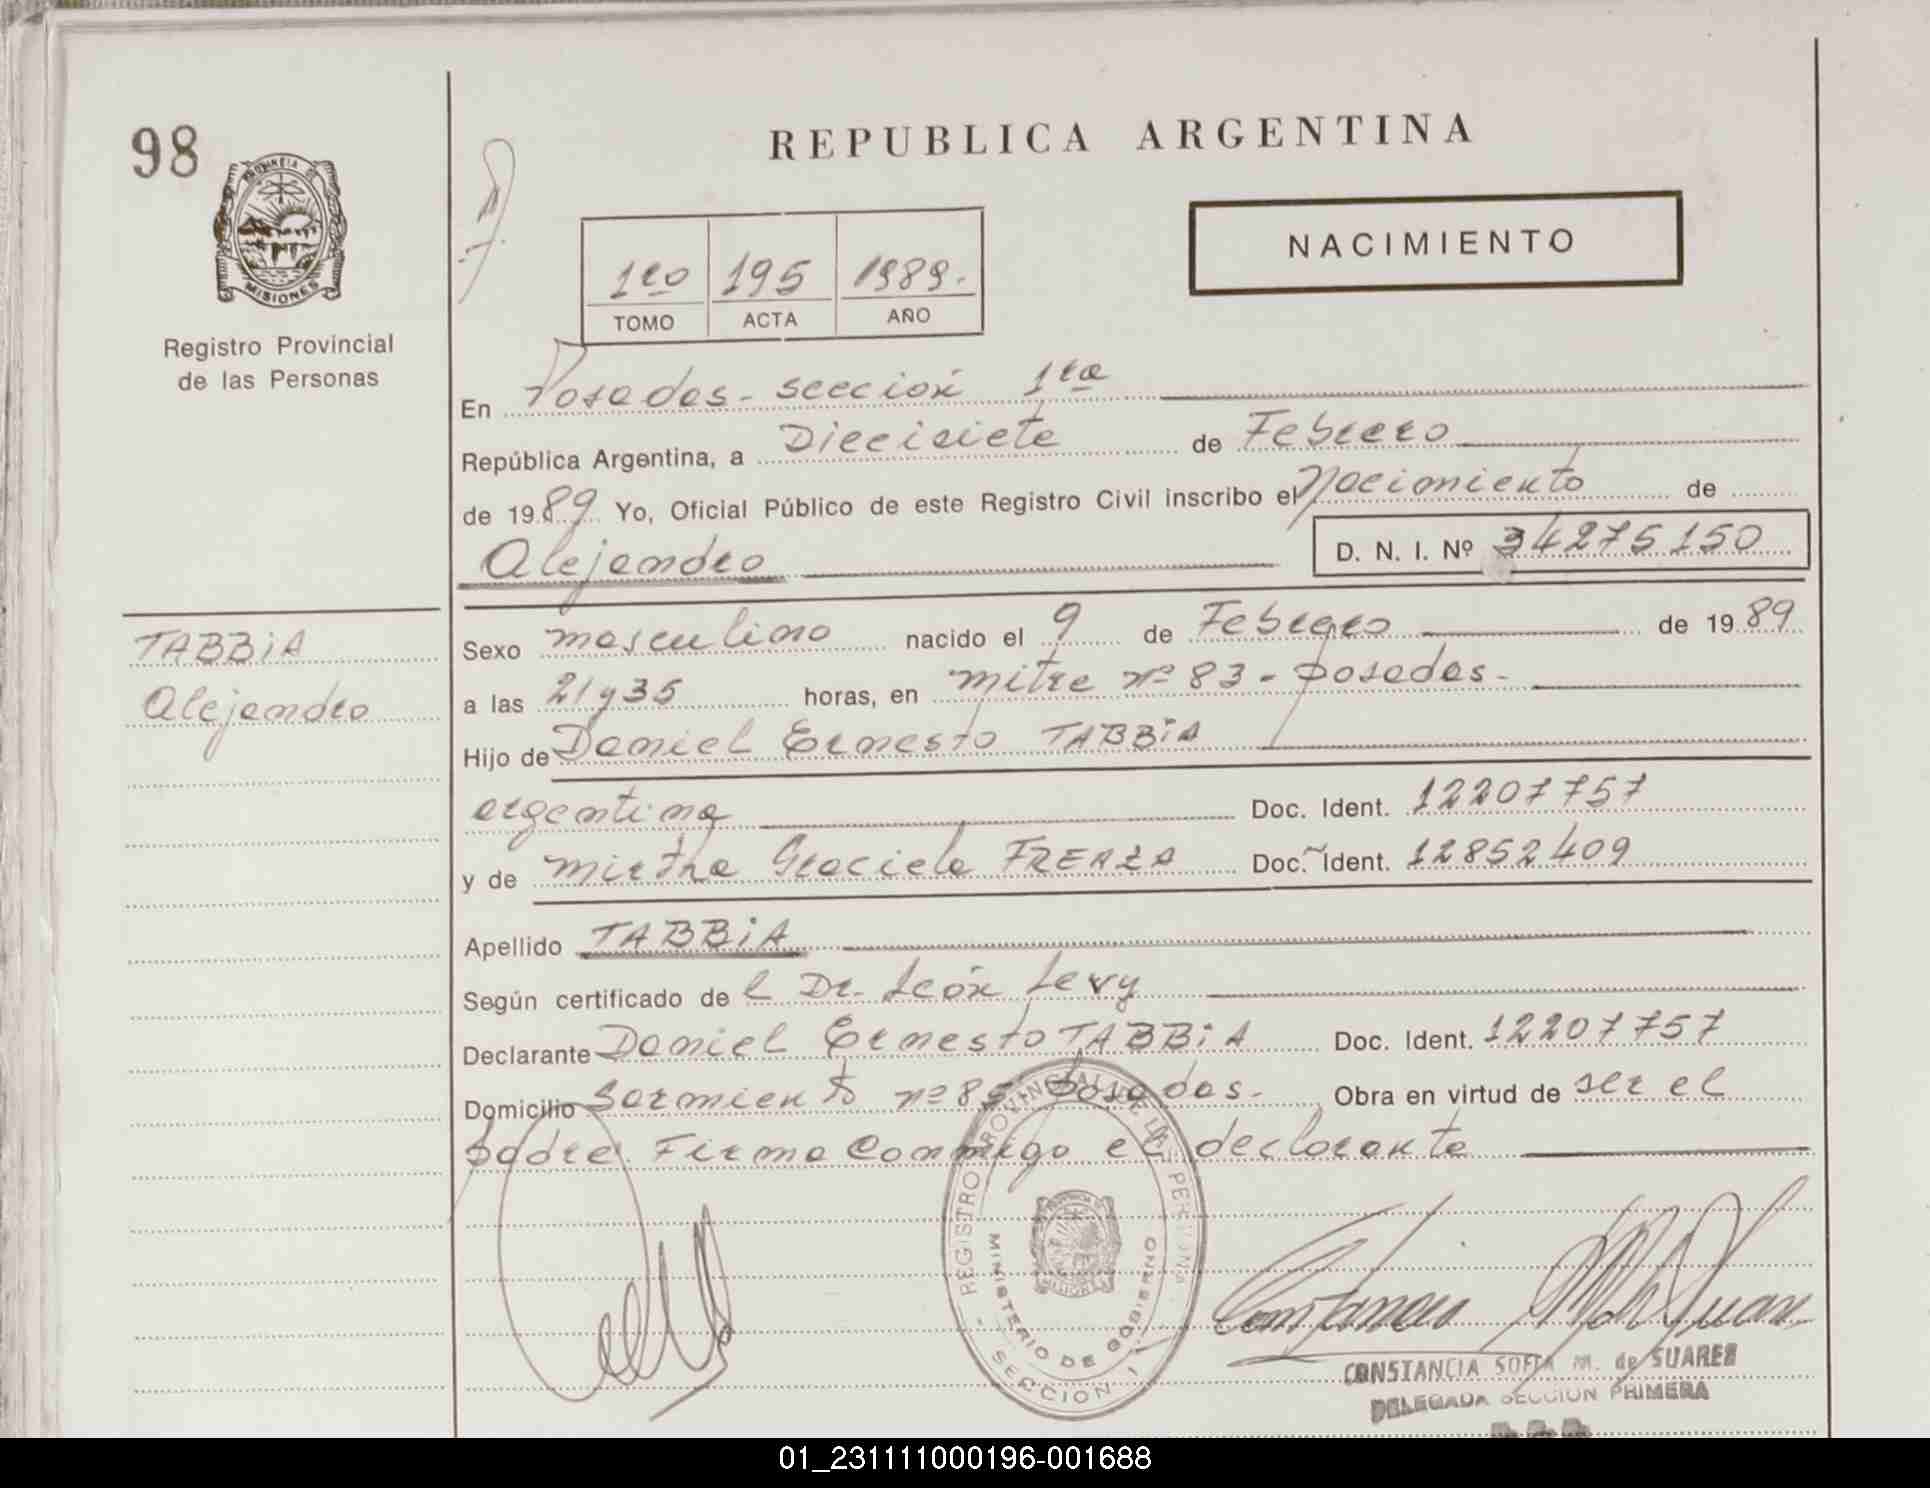 98
PROVINCIA DE
MISIONES
Registro Provincial
de las Personas
TABBiA
Alejandro
REPUBLICA ARGENTINA
NACIMIENTO
1ro 195 1989.
TOMO ACTA AÑO
En Posadas - sección 1ra
República Argentina, a Diecisiete de Febrero
de 1989 Yo, Oficial Público de este Registro Civil inscribo el Nacimiento de
Alejandro D. N. I. Nº 34275150
Sexo masculino nacido el 9 de Febrero de 1989
a las 21 y 35 horas, en mitre nº 83 - posadas -
Hijo de Daniel Ernesto TABBiA
argentina Doc. Ident. 12207757
y de mirtha Graciela Doc. Ident. 12852409
Apellido TABBiA
Según certificado de l Dr. León Levy
Declarante Daniel Ernesto TABBiA Doc. Ident. 12207757
Domicilio Sarmiento nº 85 posadas. Obra en virtud de ser el
padre. Firma Conmigo el declarante
REGISTRO PROVINCIAL DE LAS PERSONAS
MINISTERIO DE GOBIERNO
- SECCION 1 -
CONSTANCIA SOFIA M. de SUARES
DELEGADA SECCION PRIMERA
01_231111000196-001688